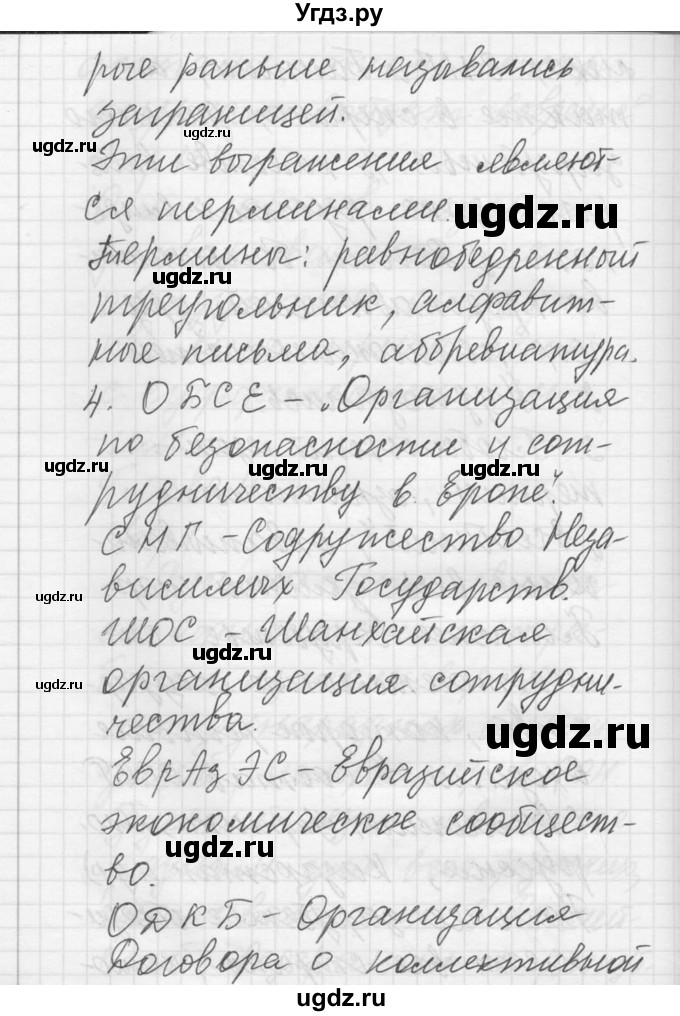 Угдз.ру
рые раньше назывались
заграницей.
ugdz.ru ugdz.ru
Эти выражения являют-
ся терминами.
ugdz.ru
Термины: равнобедренный
ugdz.ru
треугольник, алфавит-
ные письма, аббревиатура.
4. ОБСЕ – „Организация
по безопасности и сот-
ugdz.ru ugdz.ru ugdz.ru
рудничеству в Европе".
СНГ – Содружество Неза-
висимых Государств.
ugdz.ru
ШОС – Шанхайская
ugdz.ru
организация сотрудни-
ugdz.ru
чества.
ugdz.ru
ЕврАзЭС – Евразийское
экономическое сообщест-
ugdz.ru
во.
ОДКБ – Организация
Договора о коллективной
ugdz.ru